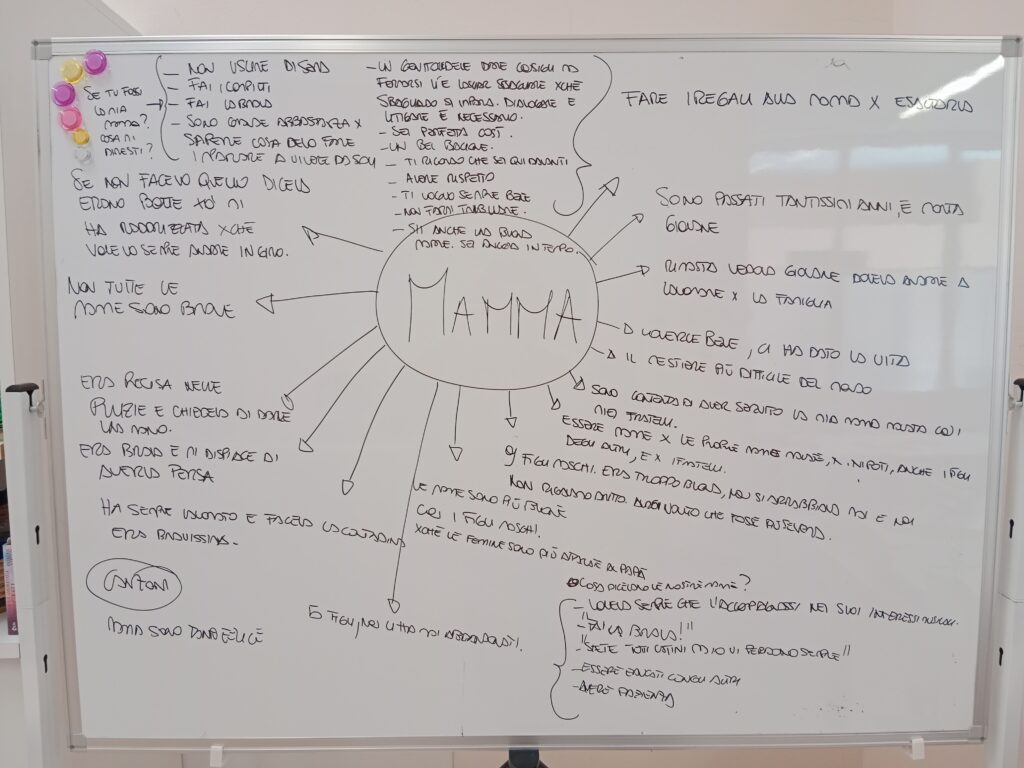 SE TU FOSSI
LA MIA
MAMMA?
COSA MI
DIRESTI?
- NON USCIRE DI SERA
- FAI I COMPITI
- FAI LA BRAVA
- SONO GRANDE ABBASTANZA X
SAPERNE COSA DEVO FARE
IMPARARE A VIVERE DA SOLI
- UN GENITORE DEVE
FERMARSI LÌ E LASCIAR SBAGLIARE XCHÈ
SBAGLIANDO SI IMPARA. DIALOGARE E
LITIGARE È NECESSARIO.
- SEI PERFETTA COSÌ.
- UN BEL BACIONE.
- TI RICORDO CHE SEI QUI DAVANTI
- AVERE RISPETTO
- TI VOGLIO SEMPRE BENE
- NON FARMI TRIBULARE.
- SII ANCHE UNA BUONA
MAMMA. SEI ANCORA IN TEMPO.
FARE I REGALI ALLA MAMMA X ESAUDIRLA
SE NON FACEVO QUELLO DICEVA
ERANO BOTTE XÒ MI
HA XCHÈ
VOLEVO SEMPRE ANDARE IN GIRO.
SONO PASSATI TANTISSIMI ANNI, È MORTA
GIOVANE
RIMASTA VEDOVA GIOVANE DOVEVA ANDARE A
LAVORARE X LA FAMIGLIA
NON TUTTE LE
MAMME SONO BRAVE
MAMMA
VOLERLE BENE, CI HA DATO LA VITA
IL MESTIERE PIÙ DIFFICILE DEL MONDO
SONO CONTENTA DI AVER SEGUITO LA MIA MAMMA COI
MIEI FRATELLI.
ESSERE MAMME X LE PROPRIE MAMME X I NIPOTI, ANCHE I FIGLI
DEGLI ALTRI, E X I FRATELLI.
ERA PRECISA NELLE
PULIZIE E CHIEDEVA DI DARLE
UNA MANO.
9 FIGLI MASCHI. ERA TROPPO BUONA, NON SI ARRABBIAVA MAI E NOI
NON RIGAVAMO DRITTO. AVREI VOLUTO CHE FOSSE PIÙ SEVERA.
ERA BRAVA E MI DISPIACE DI
AVERLA PERSA
LE MAMME SONO PIÙ BUONE
CON I FIGLI MASCHI.
XCHÈ LE FEMMINE SONO PIÙ AFFINI AL PAPÀ
HA SEMPRE LAVORATO E FACEVA LA CONTADINA
ERA BRAVISSIMA.
CANZONI
MAMMA SONO TANTO FELICE
5 FIGLI, NON CI HA MAI ABBANDONATI.
COSA DICEVANO LE NOSTRE MAMME?
- VOLEVA SEMPRE CHE L'ACCOMPAGNASSI NEI SUOI INTERESSI
- "FAI LA BRAVA!"
- "SIETE TUTTI CRETINI MA IO VI PERDONO SEMPRE"
- ESSERE EDUCATI CON GLI ALTRI
- AVERE PAZIENZA